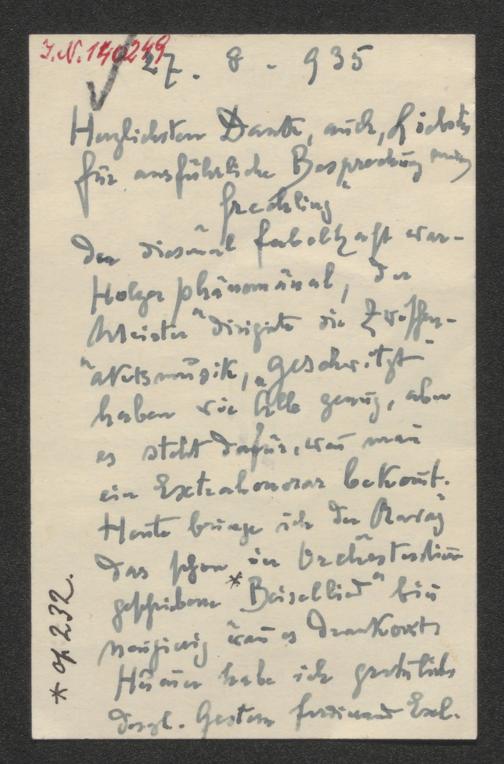 J.N. 140249
27. 8. 935
Herzlichsten Dank, auch,
für ausführliche Besprechung
Frechling"
Der diesmal fabelhaft war-
Holger phänomänal, der
Meister" dirigirte die Zwischen-
"aktsmusik, „Geschwitzt"
haben wir Alle genug, aber
es steht dafür, wenn man
ein Extrahonorar bekommt.
Heute bringe ich der Ravag
das schon im
geschriebene * "Beisellied" bin
neugierig wann es drankommt
habe ich
dergl. Gestern Ferdinand Exl.
* op. 232.